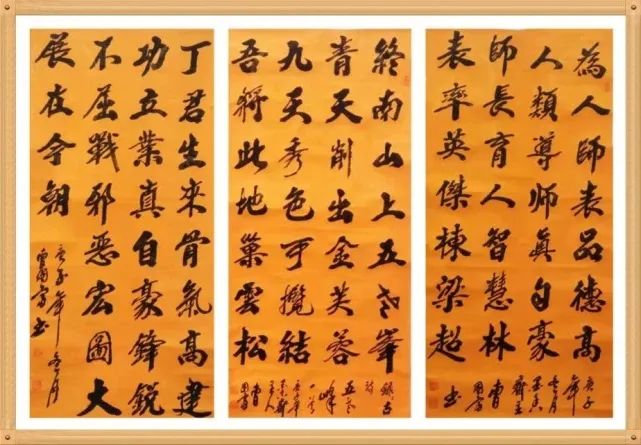 為人師表品德高
人類導師眞自豪
師長育人智慧林
表率英傑棟梁超
庚子年
书
終南山上五老峯
青天削出金芙蓉
九天秀色可攬結
吾將此地巢雲松
錄古詩
五老峰
一首
丁君生來骨氣高建
功立業真自豪鋒銳
不屈戰邪惡宏圖大
展在今朝
庚子年冬月
书